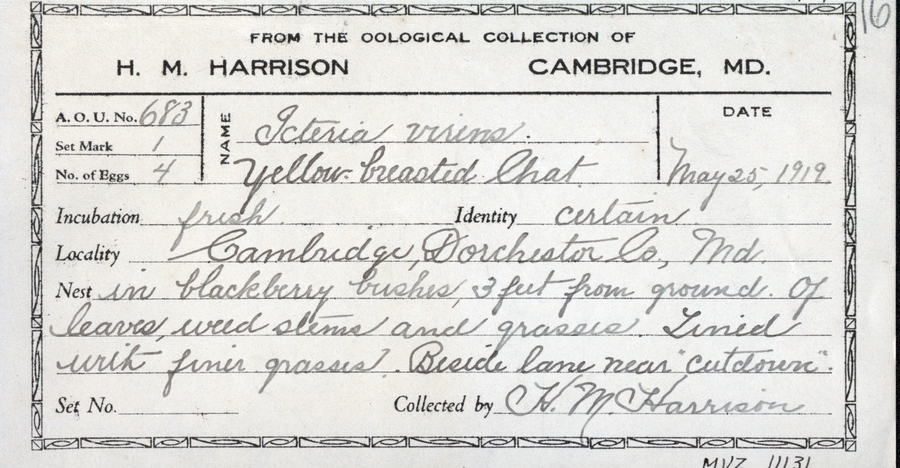 16
FROM THE OOLOGICAL COLLECTION OF
H. M. HARRISON CAMBRIDGE, MD.
A. O. U. No. 683 NAME Icteria virens. DATE
Set Mark 1
No. of Eggs 4 Yellow-breasted Chat. May 25, 1919.
Incubation fresh. Identity certain
Locality Cambridge, Dorchester Co., Md.
Nest in blackberry bushes, 3 feet from ground. Of
leaves, weed stems and grasses. Lined
with finer grasses. Beside lane near "cutdown".
Set No. Collected by H. M. Harrison
MVZ 11131